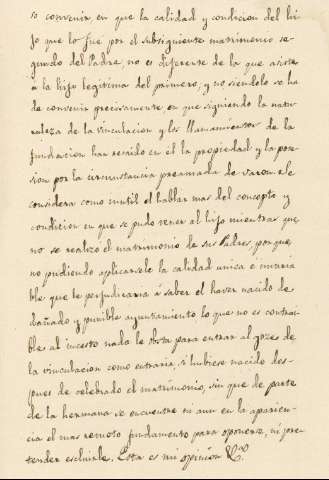 so convenir en que la calidad y condicion del hi-
jo que lo fue por el subsiguiente matrimonio se-
gundo del Padre, no es diferente de la que asiste
a la hija legitima del primero, y no siendolo se ha
de convenir precisamente, en que siguiendo la natu-
raleza de la vinculacion y los llamamientos de la
fundacion han recaido en el la propiedad y la pose-
sion por la circunstancia preamada de varon. Se
considera como inutil el hablar mas del concepto y
condicion en que se pudo tener al hijo mientras que
no se realizó el matrimonio de sus Padres, porque
no pudiendo aplicarsele la calidad unica é invaria
ble que le perjudicaria á saber el haver nacido de
dañado y punible ayuntamiento lo que no es contrai-
ble al incesto nada le obsta para entrar al goze de
la vinculacion como entraria, si hubiese nacido des-
pues de celebrado el matrimonio, sin que de parte
de la hermana se encuentre ni aun en la aparien-
cia el mas remoto fundamento para oponerse, ni pre-
tender escluirle. Esta es mi opinion &.